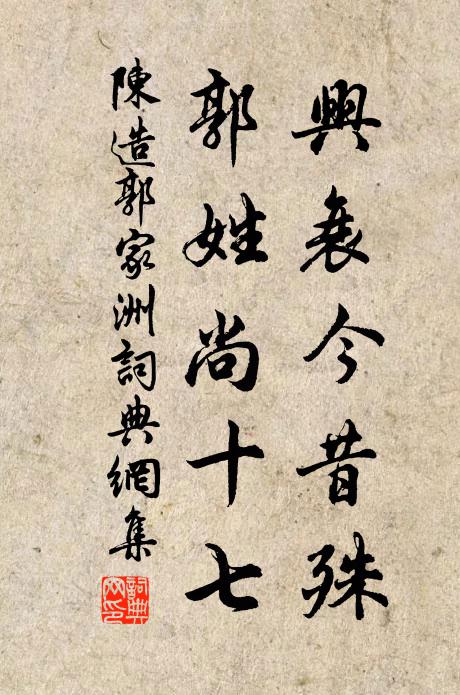 興衰今昔殊
郭姓尚十七
陳造郭家洲詞典網集
詞典網印